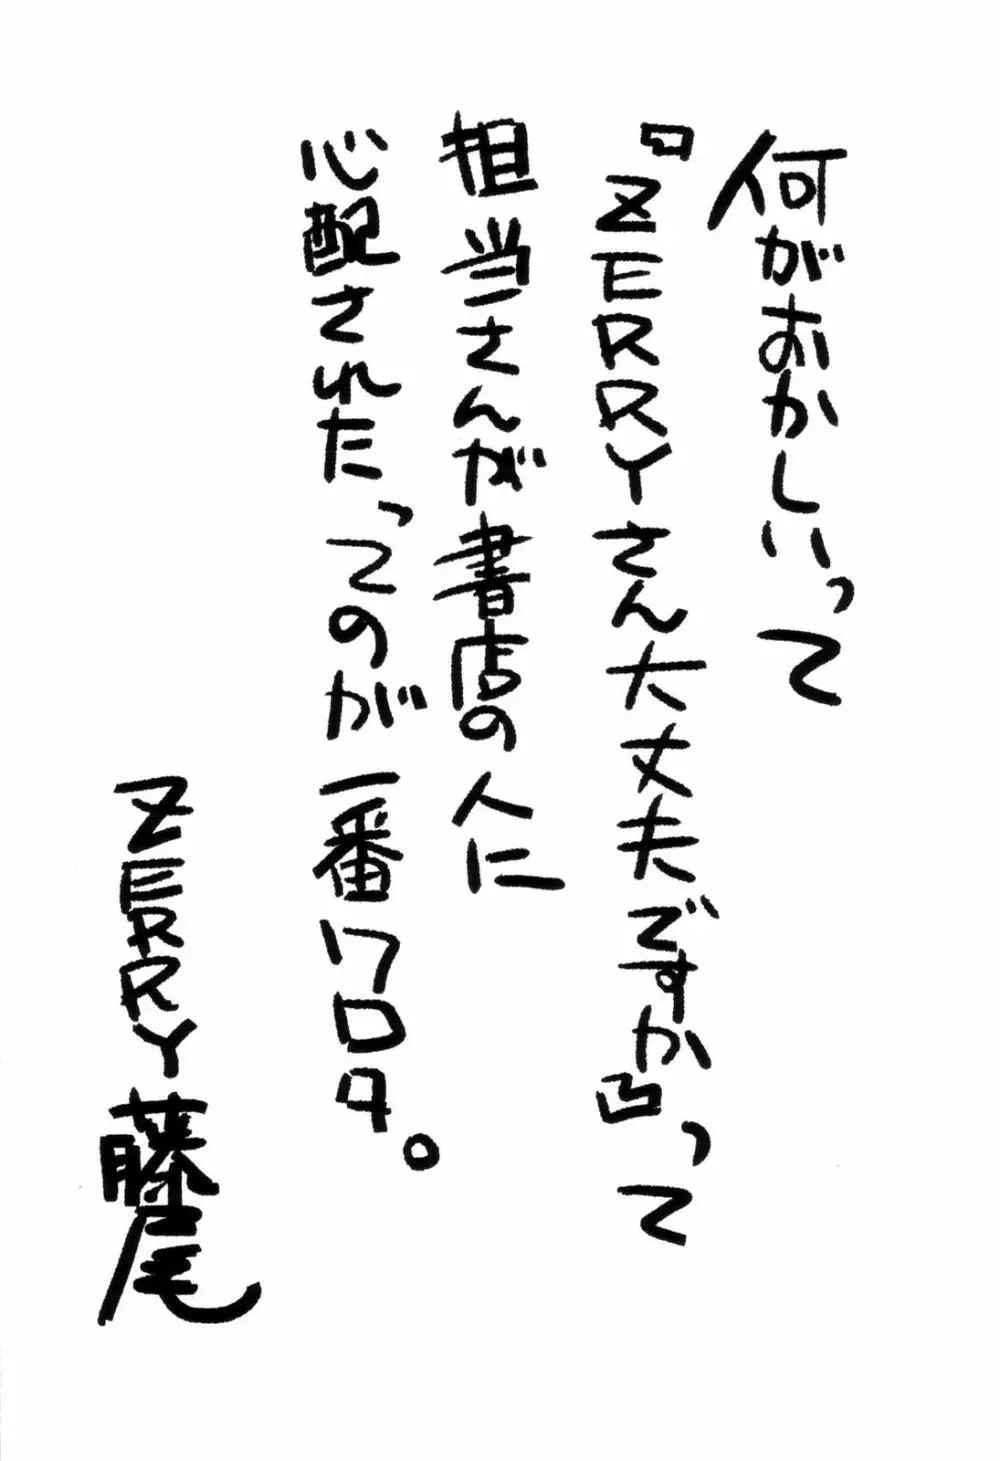 何がおかしいって
『ZERRYさん大丈夫ですか』って
担当さんが書店の人に
心配されたってのが一番ワロタ。
ZERRY藤尾